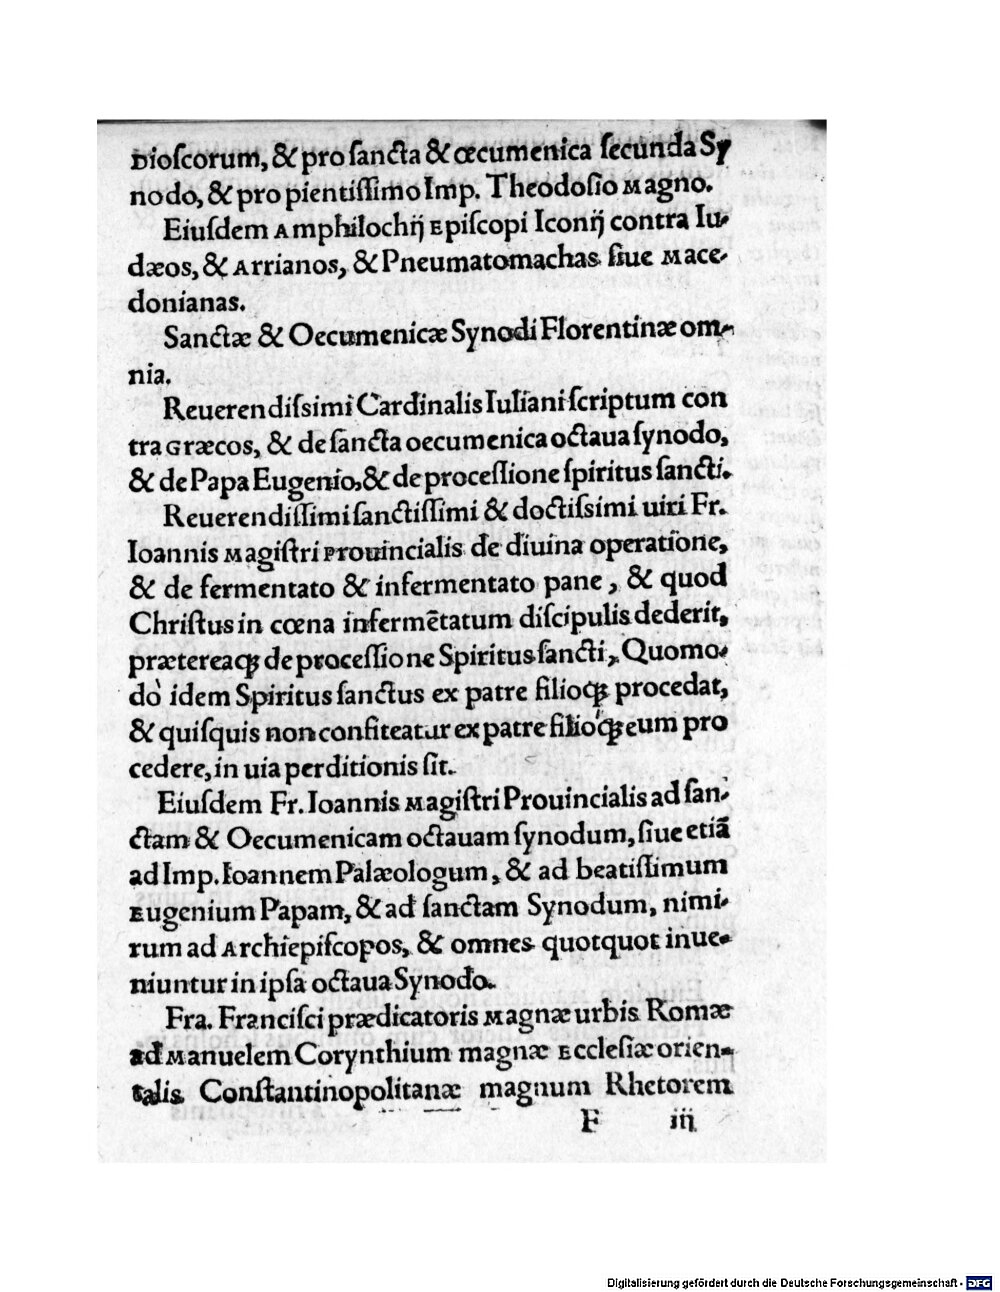 Dioſcorum, & pro ſancta & œcumenica ſecunda Sy
nodo, & pro pientiſſimo Imp. Theodoſio Magno.
Eiuſdem Amphilochij Epiſcopi Iconij contra Iu-
dæos, & Arrianos, & Pneumatomachas ſiue Mace-
donianas.
Sanctæ & Oecumenicæ Synodi Florentinæ om-
nia.
Reuerendiſsimi Cardinalis Iuliani ſcriptum con
tra Græcos, & de ſancta oecumenica octaua ſynodo,
& de Papa Eugenio, & de proceſſione ſpiritus ſancti.
Reuerendiſſimi ſanctiſſimi & doctiſsimi uiri Fr.
Ioannis Magiſtri Prouincialis de diuina operatione,
& de fermentato & infermentato pane, & quod
Chriſtus in cœna infermētatum diſcipulis dederit,
prætereaq́ꝫ de proceſſione Spiritus ſancti, Quomo-
do idem Spiritus ſanctus ex patre filioq́ꝫ procedat,
& quiſquis non confiteatur ex patre filioq́ꝫ eum pro
cedere, in uia perditionis ſit.
Eiuſdem Fr. Ioannis Magiſtri Prouincialis ad ſan-
ctam & Oecumenicam octauam ſynodum, ſiue etiā
ad Imp. Ioannem Palæologum, & ad beatiſſimum
Eugenium Papam, & ad ſanctam Synodum, nimi-
rum ad Archiepiſcopos, & omnes quotquot inue-
niuntur in ipſa octaua Synodo.
Fra. Franciſci prædicatoris Magnæ urbis Romæ
ad Manuelem Corynthium magnæ Eccleſiæ orien-
talis Conſtantinopolitanæ magnum Rhetorem
F iij
Digitalisierung gefördert durch die Deutsche Forschungsgemeinschaft - DFG